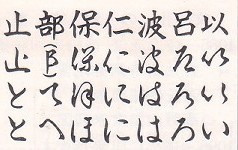 以以いい
呂呂ろろ
波波はは
仁仁にに
保保ほほ
部(阝)へへ
止止とと